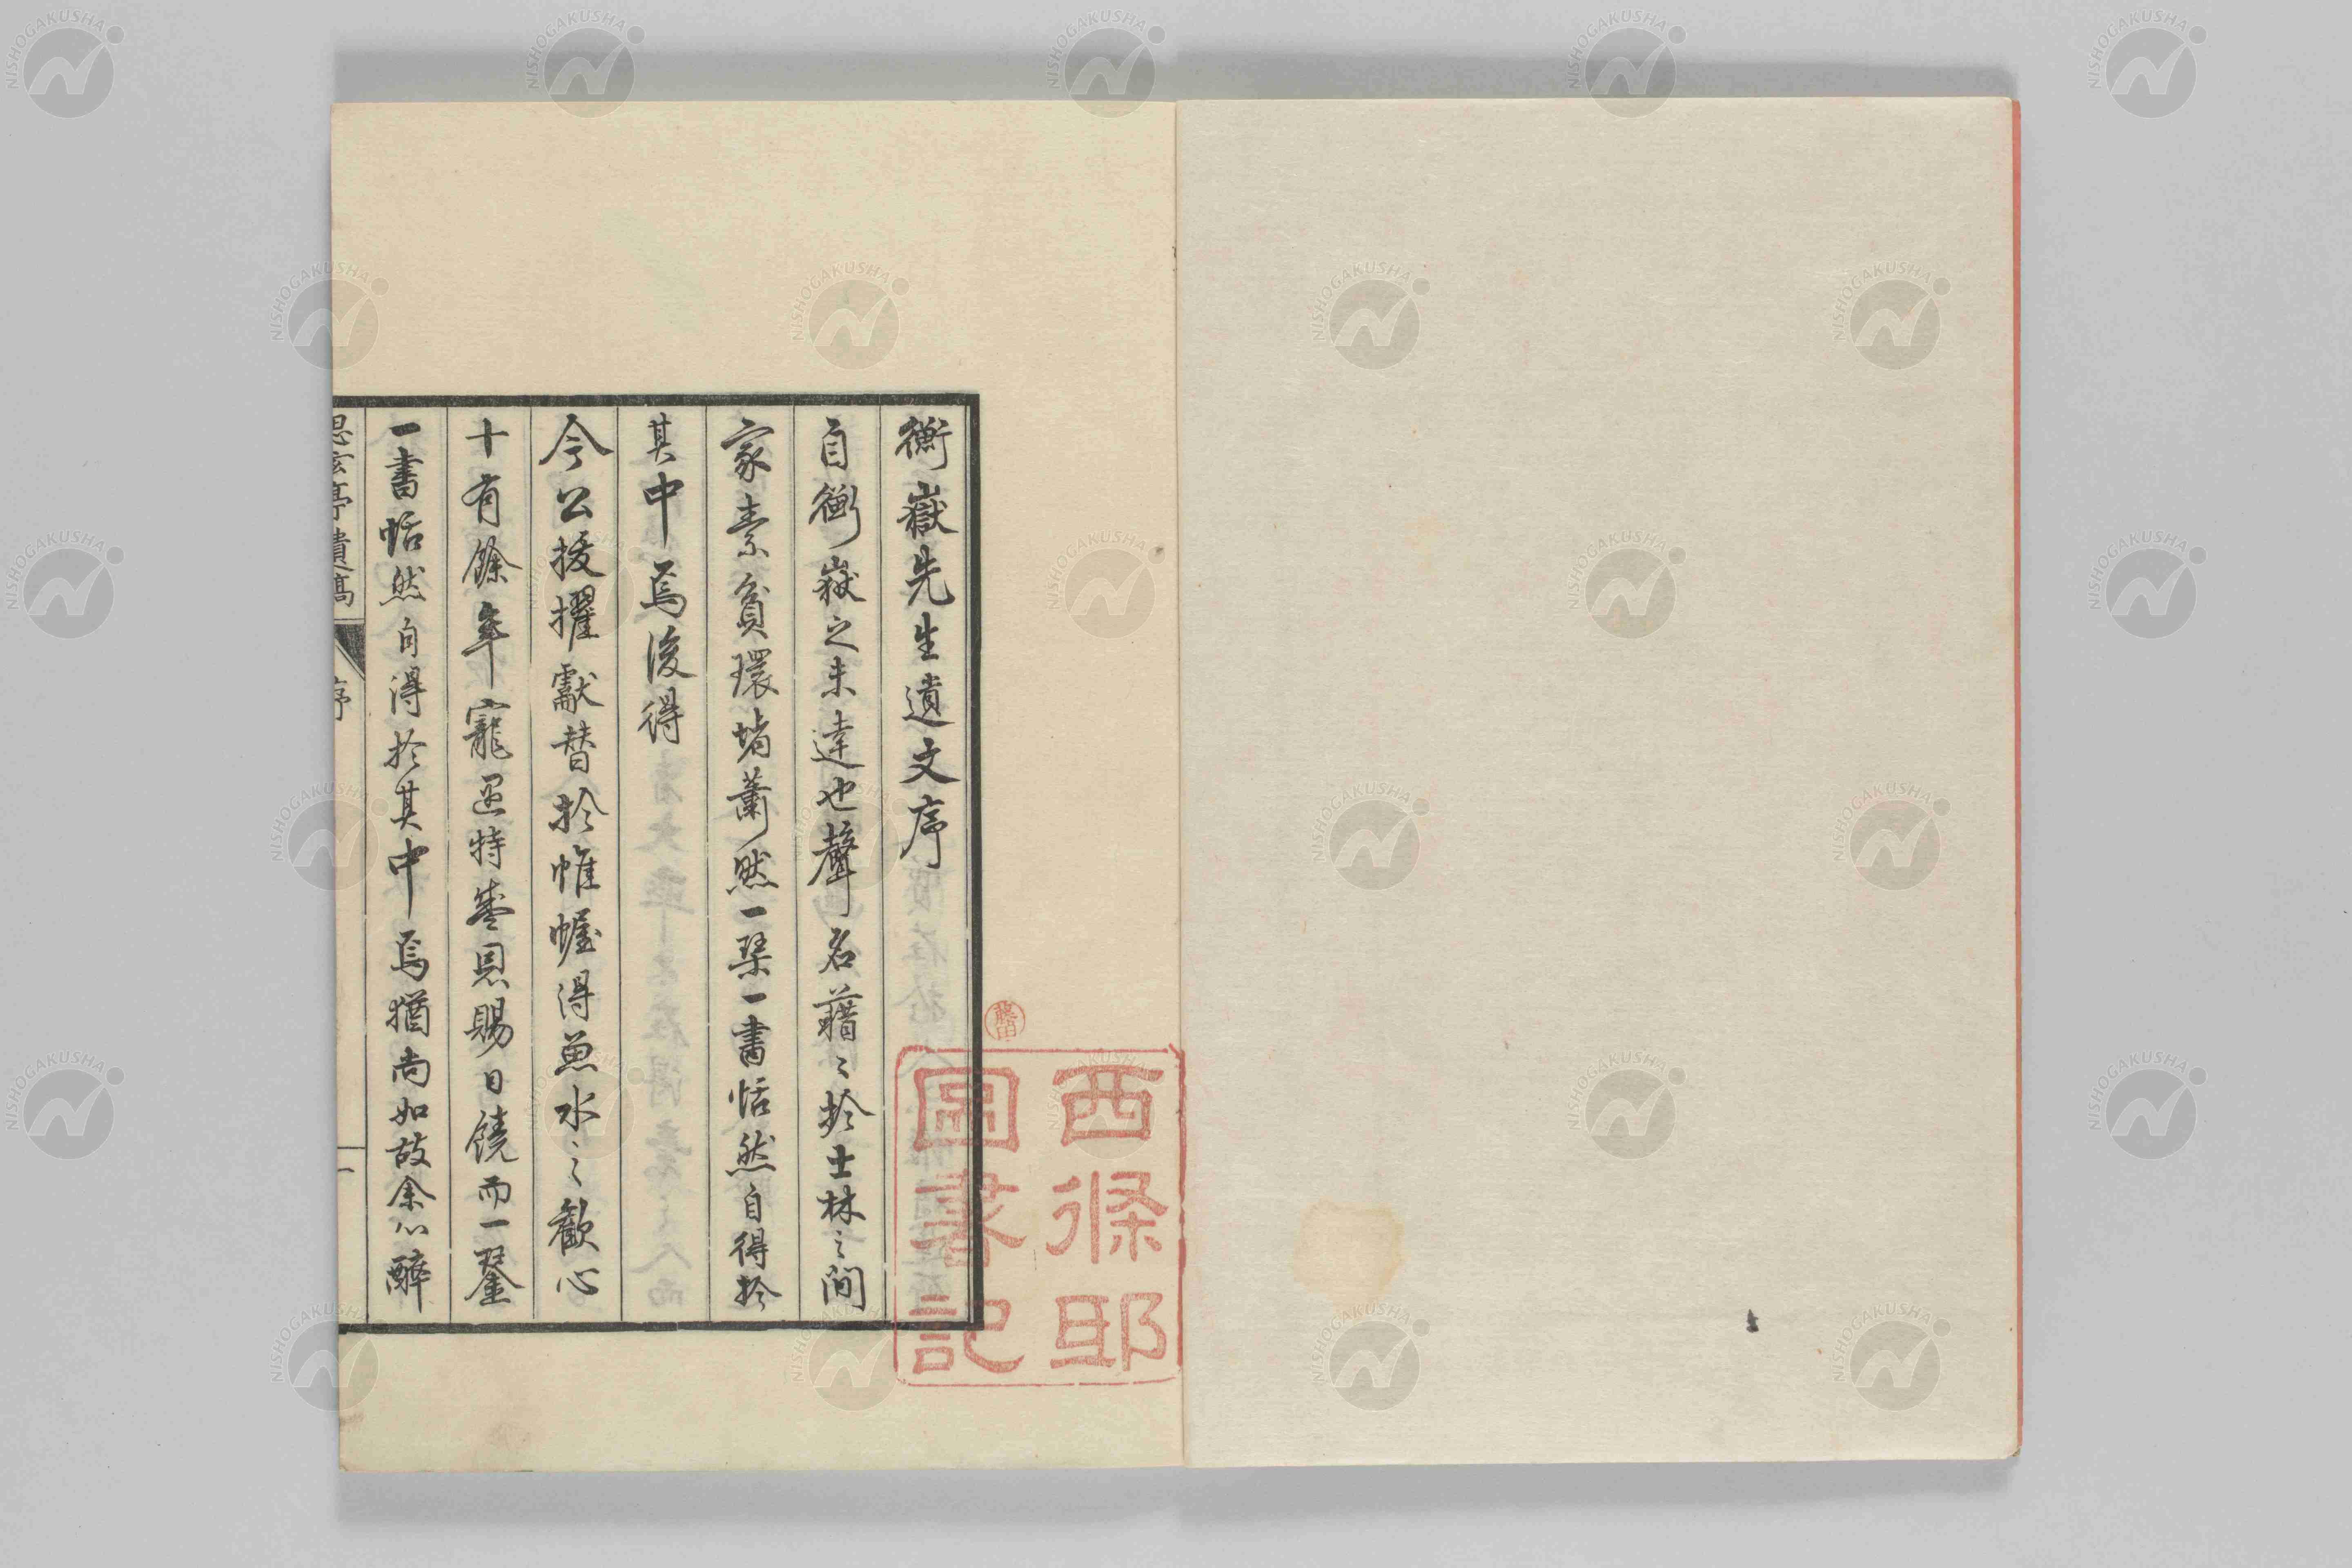 衡嶽先生遺文序
自衡嶽之未達也聲名藉〻於士林之間
家素貧環堵蕭然一琹一書恬然自得於
其中焉後得
今公援擢獻替於帷幄得魚水之歡心
十有餘年寵遇特甚恩賜日饒而一琴
一書恬然自得於其中焉猶尚如故余心醉
思玄亭遺稿
序
一
藤田
西條邸
圖書記
NISHOGAKUSHA